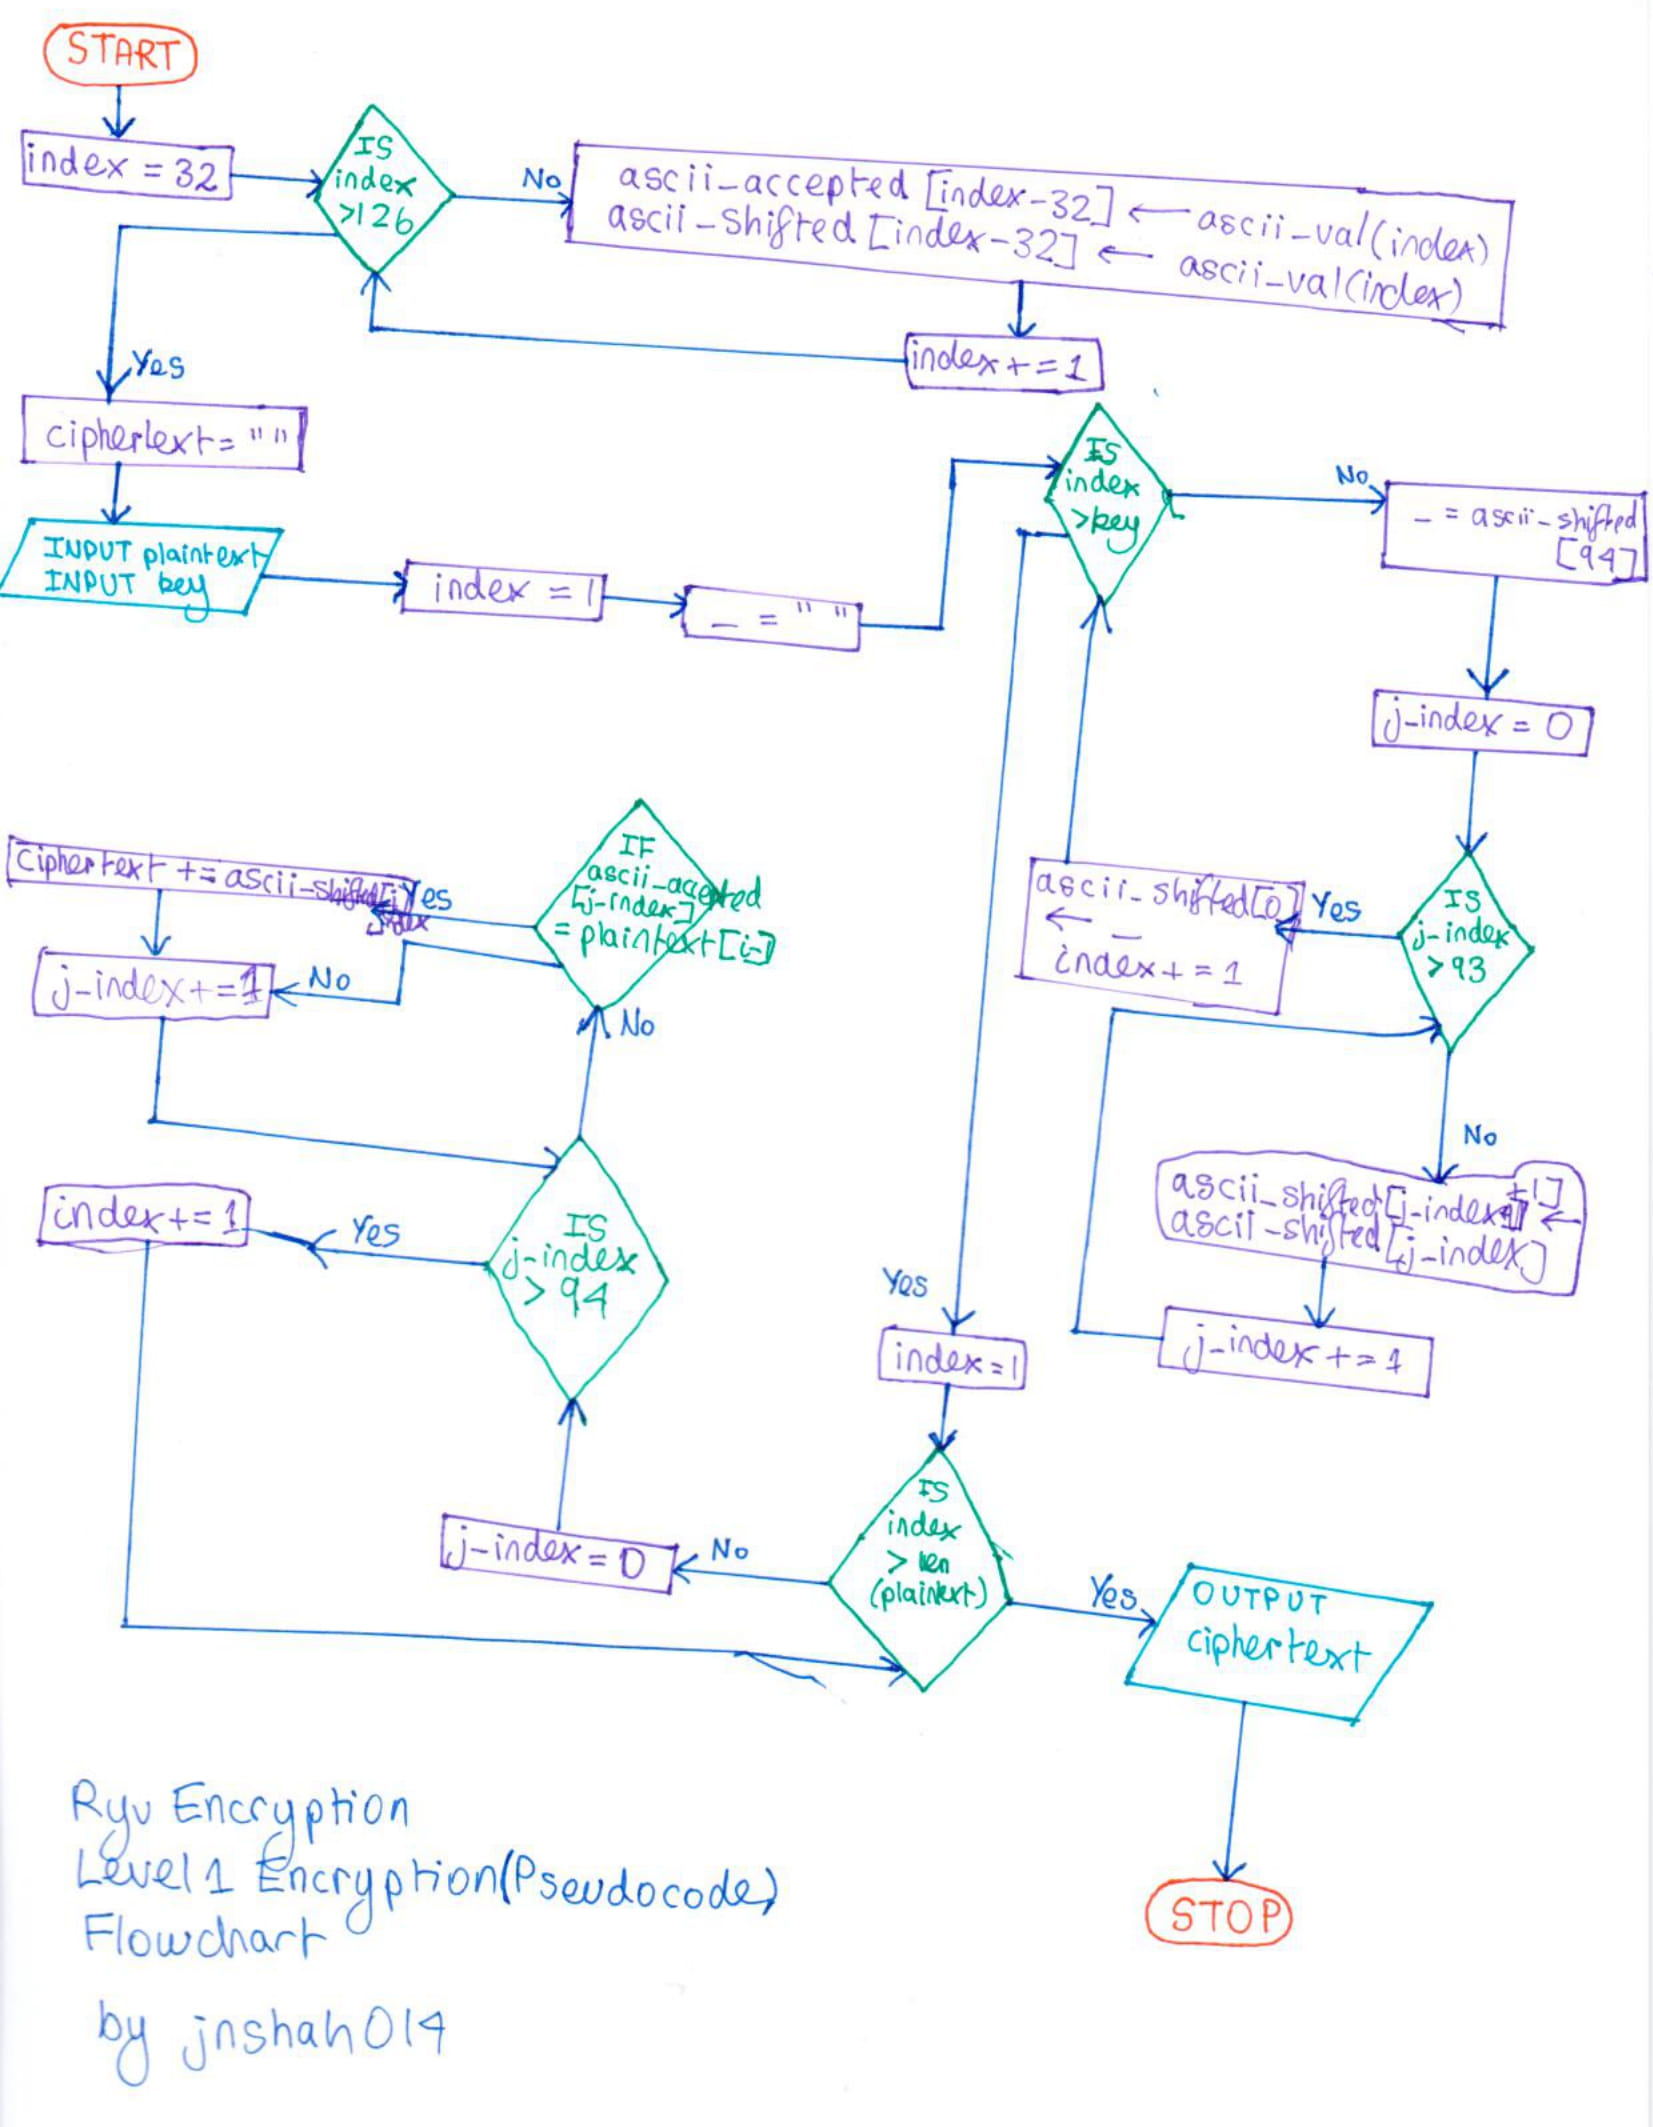 START
index = 32
IS
index
>126
No
ascii_accepted [index-32] ← ascii_val(index)
ascii_shifted [index-32] ← ascii_val(index)
index += 1
Yes
ciphertext = " "
INPUT plaintext
INPUT key
index = 1
_ = " "
IS
index
>key
No
_ = ascii_shifted
[94]
j-index = 0
IS
j-index
>93
Yes
ascii_shifted[0]
← _
index += 1
No
ascii_shifted[j-index+1] ←
ascii_shifted[j-index]
j-index += 1
Yes
index = 1
IS
index
> len
(plaintext)
No
j-index = 0
IS
j-index
> 94
Yes
index += 1
No
IF
ascii_accepted
[j-index]
= plaintext[i-]
Yes
Ciphertext += ascii-shifted[j
index
No
j-index += 1
Yes
OUTPUT
ciphertext
STOP
Ryu Encryption
Level 1 Encryption(Pseudocode)
Flowchart
by jnshah014